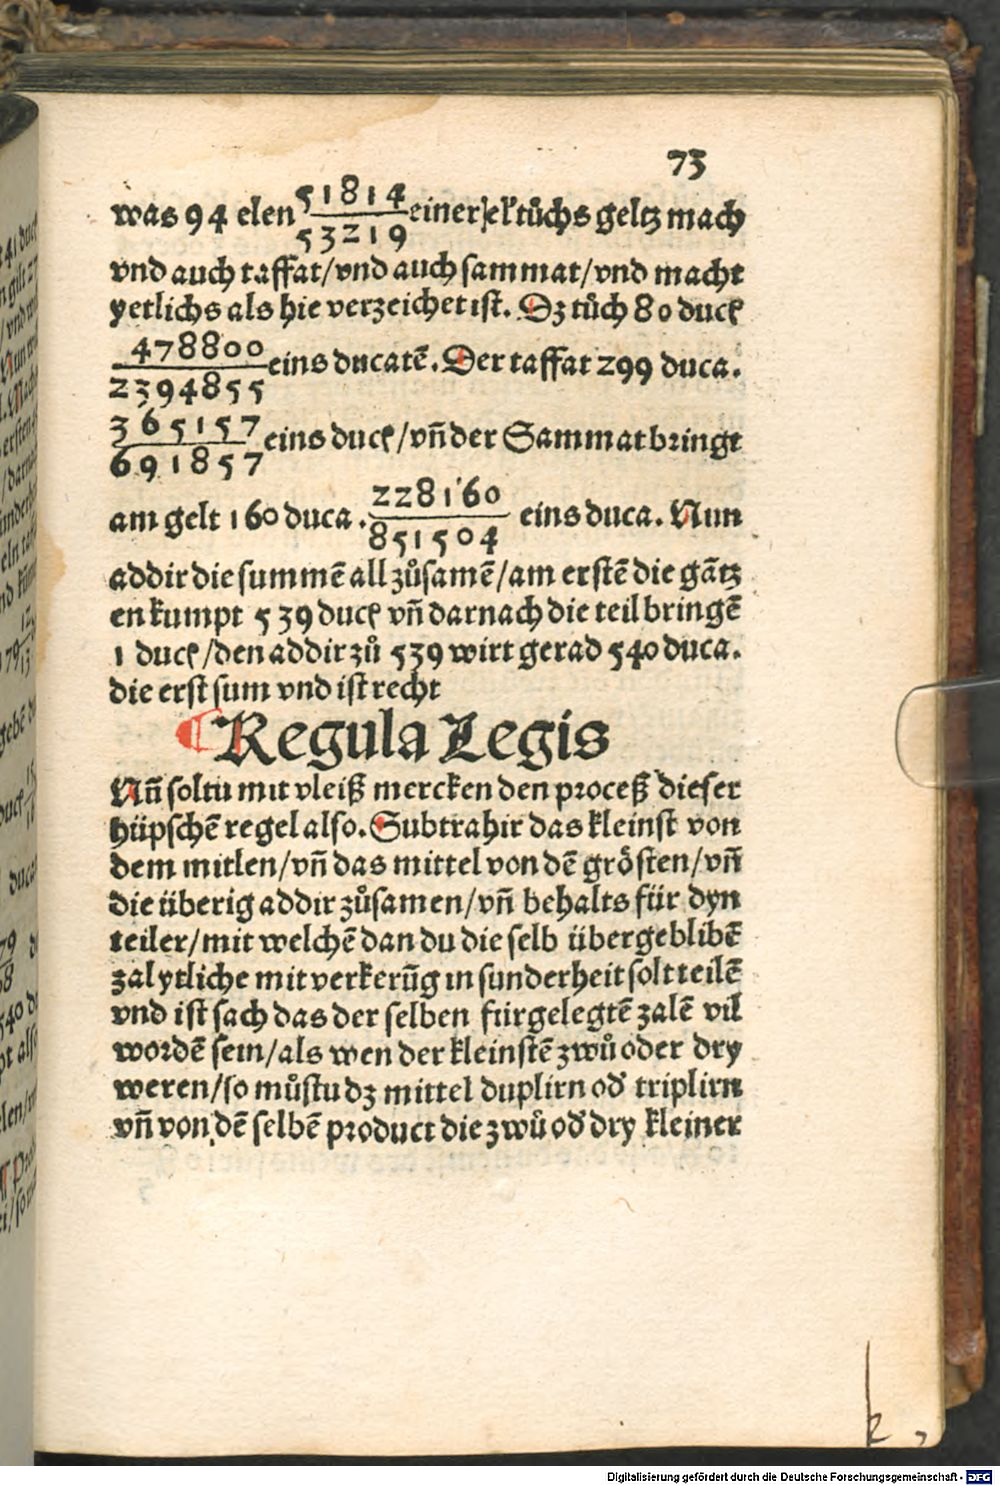 73
was 94 elen 51814/53219 einer el tůchs geltz mach
vnd auch taffat/vnd auch sammat/vnd macht
yetlichs als hie verzeichet ist. Dz tůch 80 duc
478800/2394855 eins ducatē. Der taffat 299 duca.
365157/691857 eins duc/vn̄ der Sammat bringt
am gelt 160 duca. 228160/851504 eins duca. Nun
addir die summē all zůsamē/am erstē die gātz
en kumpt 539 duc vn̄ darnach die teil bringē
1 duc/den addir zů 539 wirt gerad 540 duca.
die erst sum vnd ist recht
Regula Legis
Nūn soltu mit vleiß mercken den proceß dieser
hüpschē regel also. Subtrahir das kleinst von
dem mitlen/vn̄ das mittel von dē grösten/vn̄
die überig addir zůsamen/vn̄ behalts für dyn
teiler/mit welchē dan du die selb übergeblibē
zal ytliche mit verkerūg in sunderheit solt teilē
vnd ist sach das der selben fürgelegtē zalē vil
wordē sein/als wen der kleinstē zwů oder dry
weren/so můstu dz mittel duplirn od' triplirn
vn̄ von dē selbē product die zwů od' dry kleiner
k
Digitalisierung gefördert durch die Deutsche Forschungsgemeinschaft - DFG